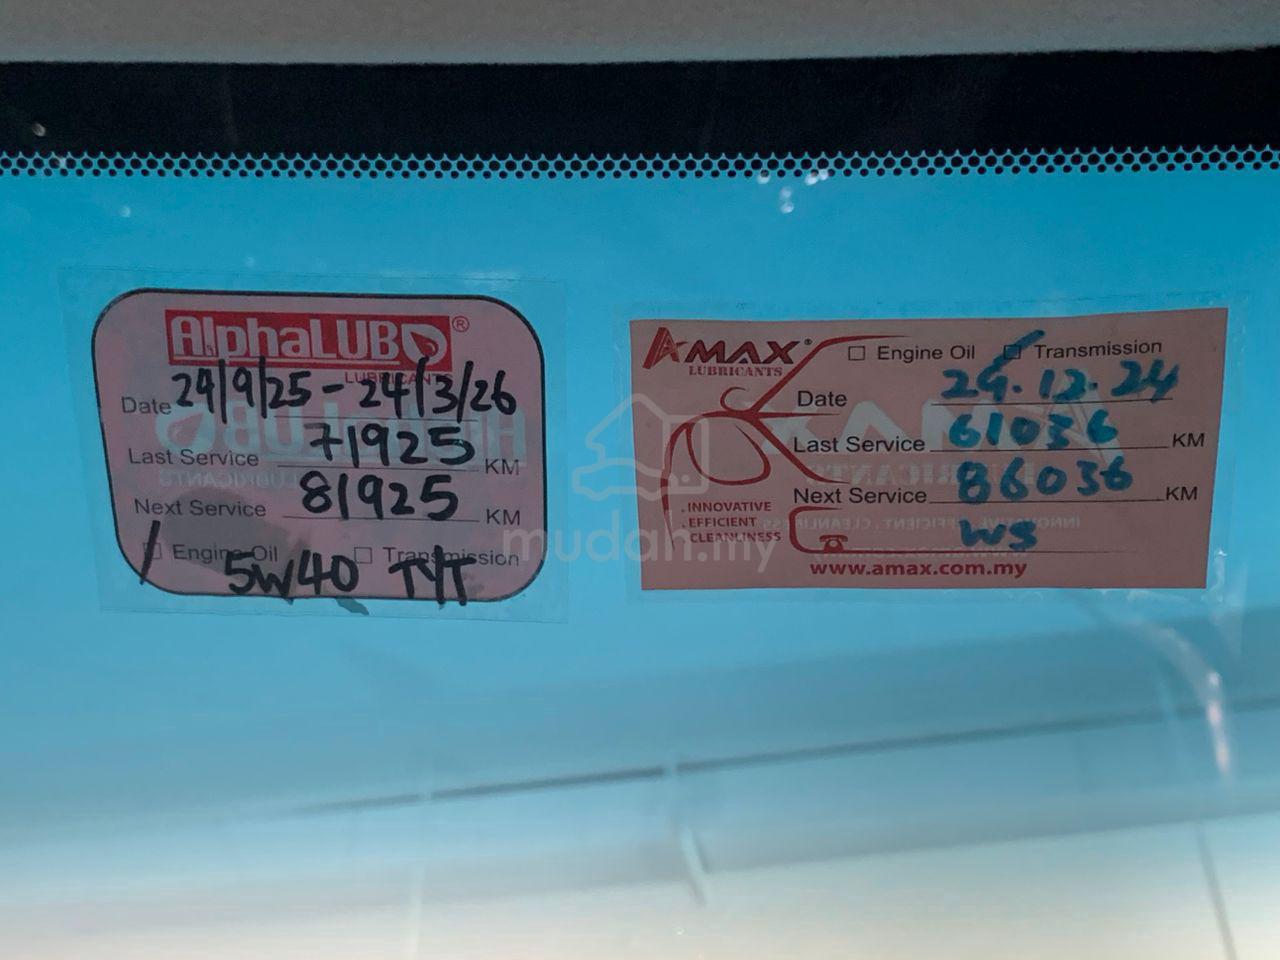 AlphaLUB®
LUBRICANT
Date 24/9/25 - 24/3/26
Last Service 71925 KM
Next Service 81925 KM
Engine Oil Transmission
5W40 TYT
AMAX®
LUBRICANTS
Engine Oil Transmission
Date 24.12.24
Last Service 61036 KM
Next Service 86036 KM
.INNOVATIVE
.EFFICIENT
.CLEANLINESS
WS
www.amax.com.my
mudah.my